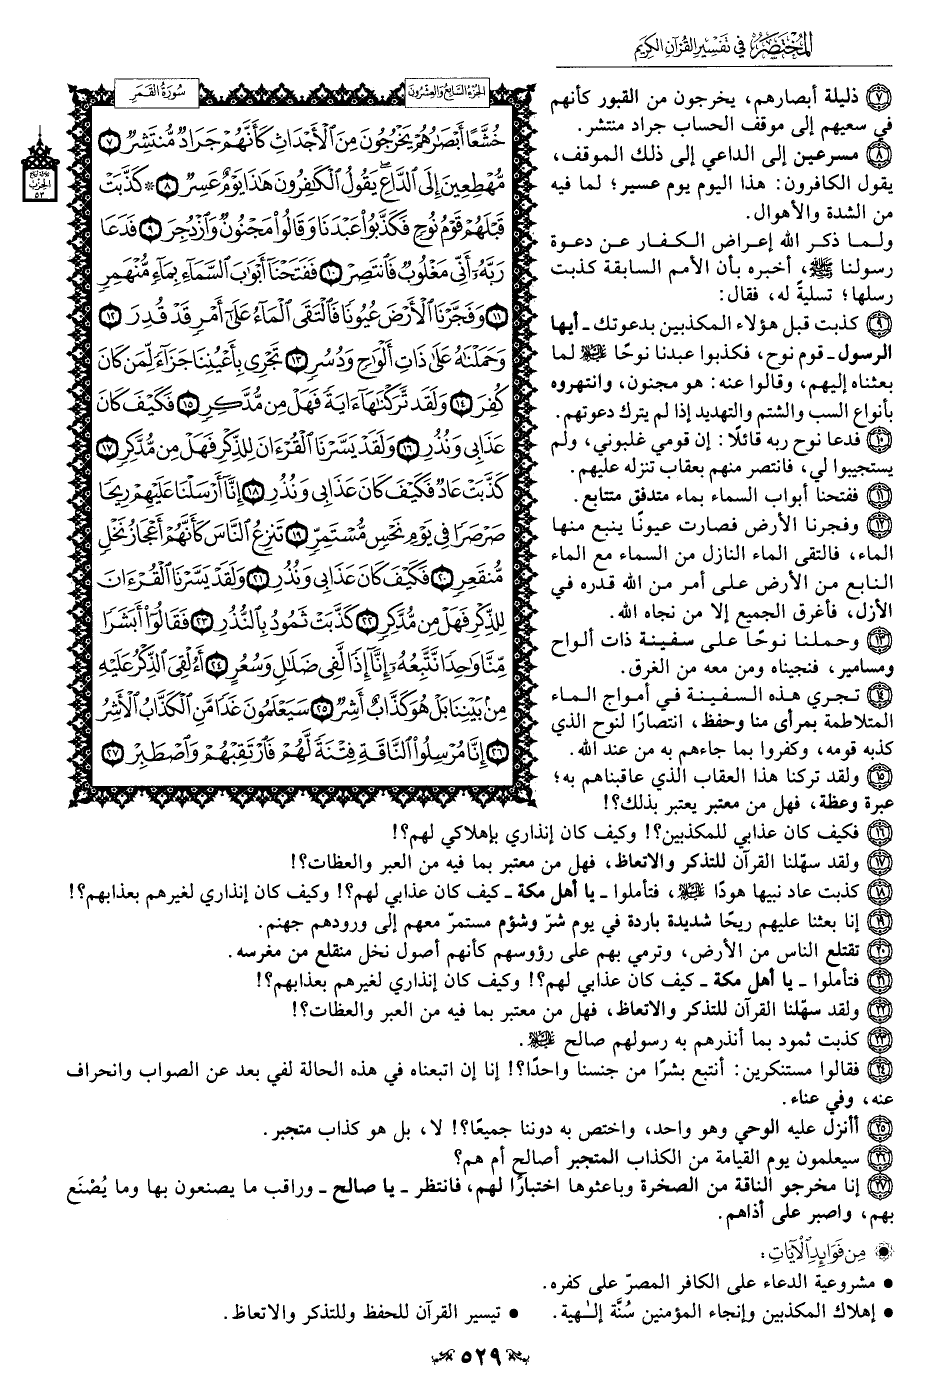 المختصر في تفسير القرآن الكريم
الجزء السابع والعشرون
سورة القمر
خُشَّعًا أَبْصَٰرُهُمْ يَخْرُجُونَ مِنَ ٱلْأَجْدَاثِ كَأَنَّهُمْ جَرَادٌ مُّنتَشِرٌ ٧
مُّهْطِعِينَ إِلَى ٱلدَّاعِ يَقُولُ ٱلْكَٰفِرُونَ هَٰذَا يَوْمٌ عَسِرٌ ٨ ۞ كَذَّبَتْ
قَبْلَهُمْ قَوْمُ نُوحٍ فَكَذَّبُوا۟ عَبْدَنَا وَقَالُوا۟ مَجْنُونٌ وَٱزْدُجِرَ ٩ فَدَعَا
رَبَّهُۥٓ أَنِّى مَغْلُوبٌ فَٱنتَصِرْ ١٠ فَفَتَحْنَآ أَبْوَٰبَ ٱلسَّمَآءِ بِمَآءٍ مُّنْهَمِرٍ
١١ وَفَجَّرْنَا ٱلْأَرْضَ عُيُونًا فَٱلْتَقَى ٱلْمَآءُ عَلَىٰٓ أَمْرٍ قَدْ قُدِرَ ١٢
وَحَمَلْنَٰهُ عَلَىٰ ذَاتِ أَلْوَٰحٍ وَدُسُرٍ ١٣ تَجْرِى بِأَعْيُنِنَا جَزَآءً لِّمَن كَانَ
كُفِرَ ١٤ وَلَقَد تَّرَكْنَٰهَآ ءَايَةً فَهَلْ مِن مُّدَّكِرٍ ١٥ فَكَيْفَ كَانَ
عَذَابِى وَنُذُرِ ١٦ وَلَقَدْ يَسَّرْنَا ٱلْقُرْءَانَ لِلذِّكْرِ فَهَلْ مِن مُّدَّكِرٍ ١٧
كَذَّبَتْ عَادٌ فَكَيْفَ كَانَ عَذَابِى وَنُذُرِ ١٨ إِنَّآ أَرْسَلْنَا عَلَيْهِمْ رِيحًا
صَرْصَرًا فِى يَوْمِ نَحْسٍ مُّسْتَمِرٍّ ١٩ تَنزِعُ ٱلنَّاسَ كَأَنَّهُمْ أَعْجَازُ نَخْلٍ
مُّنقَعِرٍ ٢٠ فَكَيْفَ كَانَ عَذَابِى وَنُذُرِ ٢١ وَلَقَدْ يَسَّرْنَا ٱلْقُرْءَانَ
لِلذِّكْرِ فَهَلْ مِن مُّدَّكِرٍ ٢٢ كَذَّبَتْ ثَمُودُ بِٱلنُّذُرِ ٢٣ فَقَالُوٓا۟ أَبَشَرًا
مِّنَّا وَٰحِدًا نَّتَّبِعُهُۥٓ إِنَّآ إِذًا لَّفِى ضَلَٰلٍ وَسُعُرٍ ٢٤ أَءُلْقِىَ ٱلذِّكْرُ عَلَيْهِ
مِنۢ بَيْنِنَا بَلْ هُوَ كَذَّابٌ أَشِرٌ ٢٥ سَيَعْلَمُونَ غَدًا مَّنِ ٱلْكَذَّابُ ٱلْأَشِرُ
٢٦ إِنَّا مُرْسِلُوا۟ ٱلنَّاقَةِ فِتْنَةً لَّهُمْ فَٱرْتَقِبْهُمْ وَٱصْطَبِرْ ٢٧
الحزب
٥٣
٧ ذليلة أبصارهم، يخرجون من القبور كأنهم
في سعيهم إلى موقف الحساب جراد منتشر.
٨ مسرعين إلى الداعي إلى ذلك الموقف،
يقول الكافرون: هذا اليوم يوم عسير؛ لما فيه
من الشدة والأهوال.
ولما ذكر الله إعراض الكفار عن دعوة
رسولنا ﷺ، أخبره بأن الأمم السابقة كذبت
رسلها؛ تسليةً له، فقال:
٩ كذبت قبل هؤلاء المكذبين بدعوتك ـ أيها
الرسول ـ قوم نوح، فكذبوا عبدنا نوحًا عليه السلام لما
بعثناه إليهم، وقالوا عنه: هو مجنون، وانتهروه
بأنواع السب والشتم والتهديد إذا لم يترك دعوتهم.
١٠ فدعا نوح ربه قائلًا: إن قومي غلبوني، ولم
يستجيبوا لي، فانتصر منهم بعقاب تنزله عليهم.
١١ ففتحنا أبواب السماء بماء متدفق متتابع.
١٢ وفجرنا الأرض فصارت عيونًا ينبع منها
الماء، فالتقى الماء النازل من السماء مع الماء
النابع من الأرض على أمر من الله قدره في
الأزل، فأغرق الجميع إلا من نجاه الله.
١٣ وحملنا نوحًا على سفينة ذات ألواح
ومسامير، فنجيناه ومن معه من الغرق.
١٤ تجري هذه السفينة في أمواج الماء
المتلاطمة بمرأى منا وحفظ، انتصارًا لنوح الذي
كذبه قومه، وكفروا بما جاءهم به من عند الله.
١٥ ولقد تركنا هذا العقاب الذي عاقبناهم به؛
عبرة وعظة، فهل من معتبر يعتبر بذلك؟!
١٦ فكيف كان عذابي للمكذبين؟! وكيف كان إنذاري بإهلاكي لهم؟!
١٧ ولقد سهّلنا القرآن للتذكر والاتعاظ، فهل من معتبر بما فيه من العبر والعظات؟!
١٨ كذبت عاد نبيها هودًا عليه السلام، فتأملوا ـ يا أهل مكة ـ كيف كان عذابي لهم؟! وكيف كان إنذاري لغيرهم بعذابهم؟!
١٩ إنا بعثنا عليهم ريحًا شديدة باردة في يوم شرّ وشؤم مستمرّ معهم إلى ورودهم جهنم.
٢٠ تقتلع الناس من الأرض، وترمي بهم على رؤوسهم كأنهم أصول نخل منقلع من مغرسه.
٢١ فتأملوا ـ يا أهل مكة ـ كيف كان عذابي لهم؟! وكيف كان إنذاري لغيرهم بعذابهم؟!
٢٢ ولقد سهّلنا القرآن للتذكر والاتعاظ، فهل من معتبر بما فيه من العبر والعظات؟!
٢٣ كذبت ثمود بما أنذرهم به رسولهم صالح عليه السلام.
٢٤ فقالوا مستنكرين: أنتبع بشرًا من جنسنا واحدًا؟! إنا إن اتبعناه في هذه الحالة لفي بعد عن الصواب وانحراف
عنه، وفي عناء.
٢٥ أأنزل عليه الوحي وهو واحد، واختص به دوننا جميعًا؟! لا، بل هو كذاب متجبر.
٢٦ سيعلمون يوم القيامة من الكذاب المتجبر أصالح أم هم؟
٢٧ إنا مخرجو الناقة من الصخرة وباعثوها اختبارًا لهم، فانتظر ـ يا صالح ـ وراقب ما يصنعون بها وما يُصْنَع
بهم، واصبر على أذاهم.
من فوائد الآيات:
• مشروعية الدعاء على الكافر المصرّ على كفره.
• إهلاك المكذبين وإنجاء المؤمنين سُنَّة إلٰهية. • تيسير القرآن للحفظ وللتذكر والاتعاظ.
٥٢٩